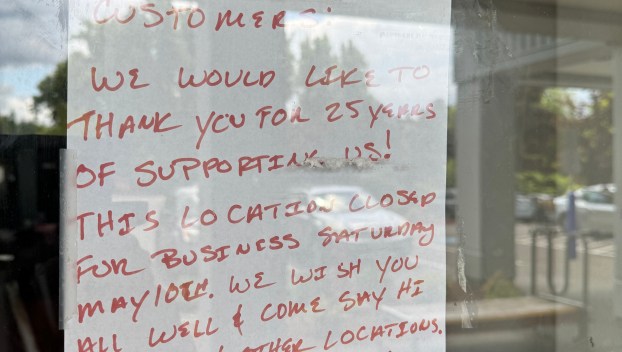 CUSTOMERS!
WE WOULD LIKE TO
THANK YOU FOR 25 YEARS
OF SUPPORTING US!
THIS LOCATION CLOSED
FOR BUSINESS SATURDAY
MAY 10TH. WE WISH YOU
ALL WELL & COME SAY HI
OTHER LOCATIONS.